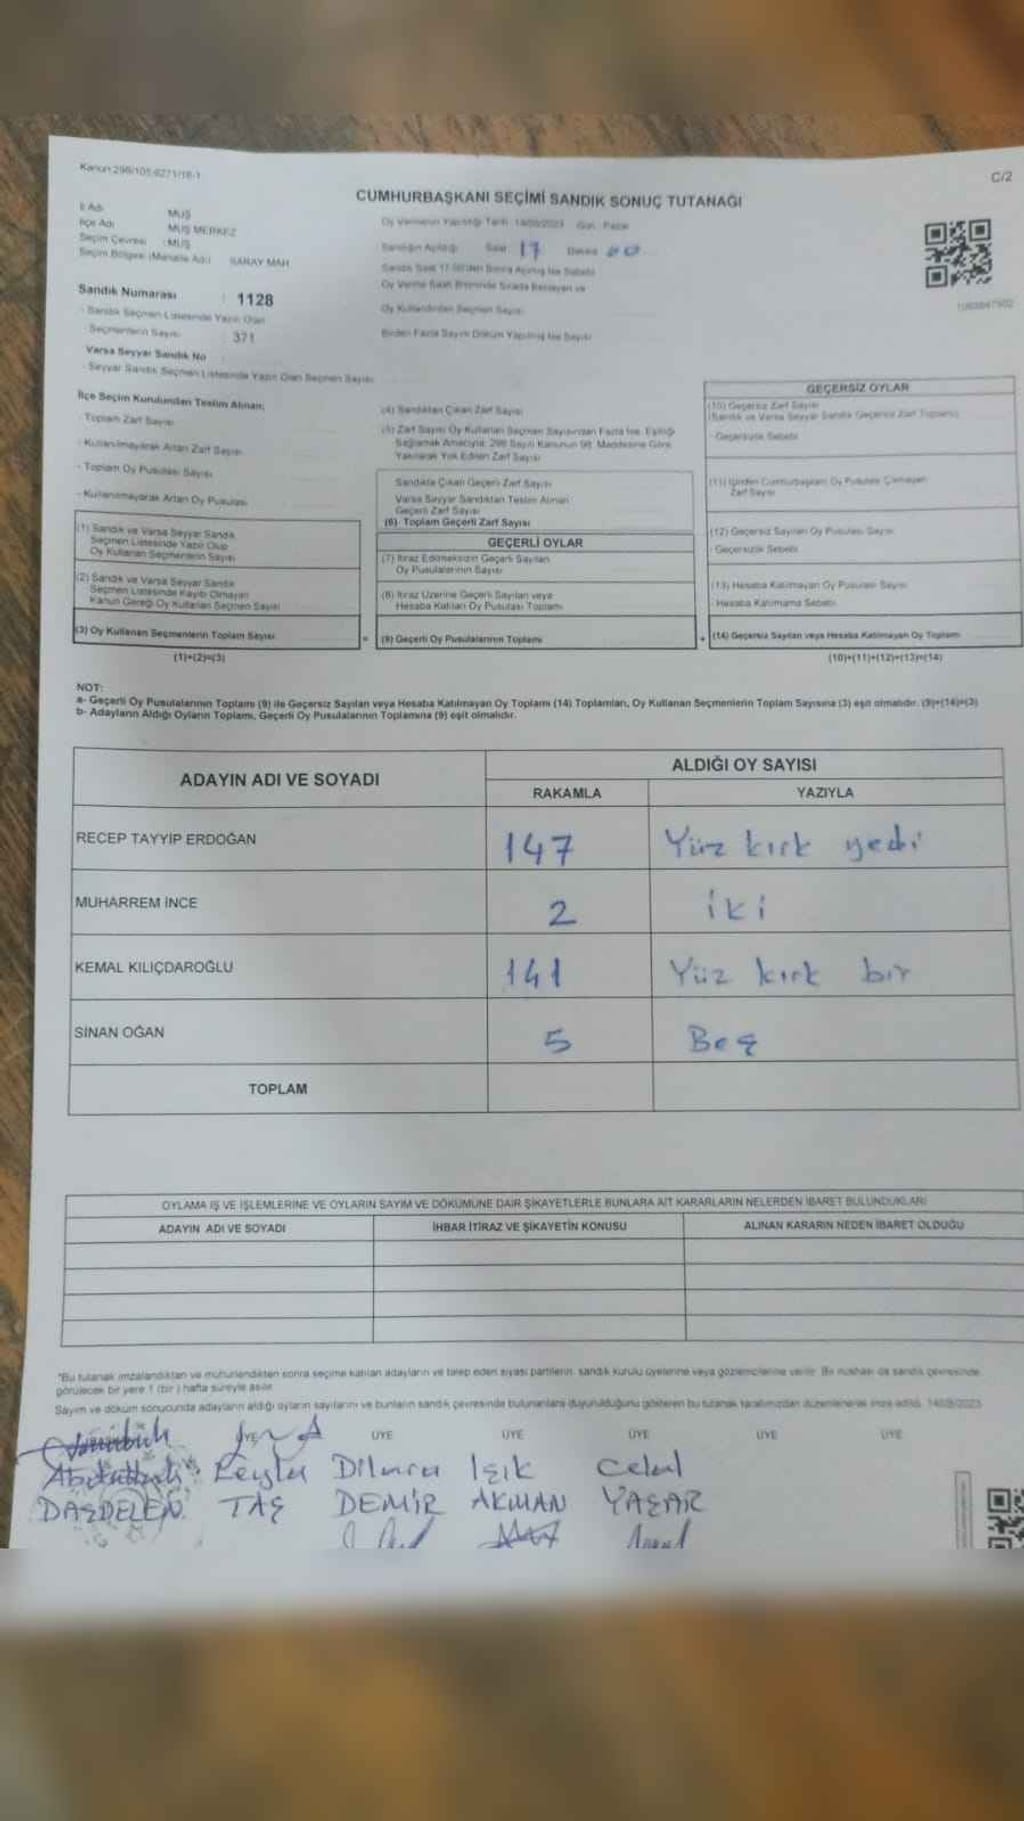 Kanun:298/105
C/2
CUMHURBAŞKANI SEÇİMİ SANDIK SONUÇ TUTANAĞI
İl Adı MUŞ
İlçe Adı MUŞ MERKEZ
Seçim Çevresi : MUŞ
Seçim Bölgesi (Mahalle Adı) SARAY MAH.
Oy Vermenin Yapıldığı Tarih 14/05/2023 Gün Pazar
Sandığın Açıldığı Saat 17 Dakika 00
Sandık Saat 17.00'den Sonra Açılmış İse Sebebi
Oy Verme Saati Bitiminde Sırada Bekleyen ve
Oy Kullandırılan Seçmen Sayısı
Birden Fazla Sayım Döküm Yapılmış İse Sayısı
Sandık Numarası : 1128
- Sandık Seçmen Listesinde Yazılı Olan
Seçmenlerin Sayısı 371
Varsa Seyyar Sandık No
- Seyyar Sandık Seçmen Listesinde Yazılı Olan Seçmen Sayısı
İlçe Seçim Kurulundan Teslim Alınan;
Toplam Zarf Sayısı
- Kullanılmayarak Artan Zarf Sayısı
- Toplam Oy Pusulası Sayısı
- Kullanılmayarak Artan Oy Pusulası
(1) Sandık ve Varsa Seyyar Sandık
Seçmen Listesinde Yazılı Olup
Oy Kullanan Seçmenlerin Sayısı
(2) Sandık ve Varsa Seyyar Sandık
Seçmen Listesinde Kayıtlı Olmayan
Kanun Gereği Oy Kullanan Seçmen Sayısı
(3) Oy Kullanan Seçmenlerin Toplam Sayısı
(1)+(2)=(3)
(4) Sandıktan Çıkan Zarf Sayısı
(5) Zarf Sayısı Oy Kullanan Seçmen Sayısından Fazla İse, Eşitliği
Sağlamak Amacıyla, 298 Sayılı Kanunun 98. Maddesine Göre
Yakılarak Yok Edilen Zarf Sayısı
Sandıkta Çıkan Geçerli Zarf Sayısı
Varsa Seyyar Sandıktan Teslim Alınan
Geçerli Zarf Sayısı
(6) Toplam Geçerli Zarf Sayısı
GEÇERLİ OYLAR
(7) İtiraz Edilmeksizin Geçerli Sayılan
Oy Pusulalarının Sayısı
(8) İtiraz Üzerine Geçerli Sayılan veya
Hesaba Katılan Oy Pusulası Toplamı
= (9) Geçerli Oy Pusulalarının Toplamı
GEÇERSİZ OYLAR
(10) Geçersiz Zarf Sayısı
(Sandık ve Varsa Seyyar Sandık Geçersiz Zarf Toplamı)
- Geçersizlik Sebebi
(11) İçinden Cumhurbaşkanı Oy Pusulası Çıkmayan
Zarf Sayısı
(12) Geçersiz Sayılan Oy Pusulası Sayısı
- Geçersizlik Sebebi
(13) Hesaba Katılmayan Oy Pusulası Sayısı
- Hesaba Katılmama Sebebi
+ (14) Geçersiz Sayılan veya Hesaba Katılmayan Oy Toplamı
(10)+(11)+(12)+(13)=(14)
NOT:
a- Geçerli Oy Pusulalarının Toplamı (9) ile Geçersiz Sayılan veya Hesaba Katılmayan Oy Toplamı (14) Toplamları, Oy Kullanan Seçmenlerin Toplam Sayısına (3) eşit olmalıdır. (9)+(14)=(3)
b- Adayların Aldığı Oyların Toplamı, Geçerli Oy Pusulalarının Toplamına (9) eşit olmalıdır.
ADAYIN ADI VE SOYADI
ALDIĞI OY SAYISI
RAKAMLA YAZIYLA
RECEP TAYYİP ERDOĞAN 147 Yüz kırk yedi
MUHARREM İNCE 2 iki
KEMAL KILIÇDAROĞLU 141 Yüz kırk bir
SİNAN OĞAN 5 Beş
TOPLAM
OYLAMA İŞ VE İŞLEMLERİNE VE OYLARIN SAYIM VE DÖKÜMÜNE DAİR ŞİKAYETLERLE BUNLARA AİT KARARLARIN NELERDEN İBARET BULUNDUKLARI
ADAYIN ADI VE SOYADI İHBAR İTİRAZ VE ŞİKAYETİN KONUSU ALINAN KARARIN NEDEN İBARET OLDUĞU
*Bu tutanak imzalandıktan ve mühürlendikten sonra seçime katılan adayların ve talep eden siyasi partilerin, sandık kurulu üyelerine veya gözlemcilerine verilir. Bir nüshası da sandık çevresinde
görülecek bir yere 1 (bir) hafta süreyle asılır.
Sayım ve döküm sonucunda adayların aldığı oyların sayılarını ve bunların sandık çevresinde bulunanlara duyurulduğunu gösteren bu tutanak tarafımızdan düzenlenerek imza edildi. 14/05/2023
ÜYE ÜYE ÜYE ÜYE ÜYE ÜYE
Leyla Dilara Işık Celal
DAŞDELEN TAŞ DEMİR AKMAN YAŞAR